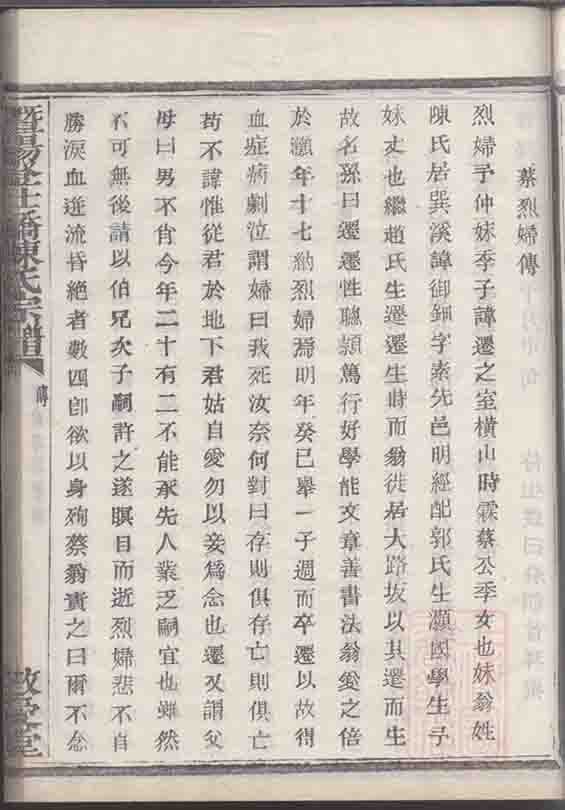 蔡烈婦傳
烈婦予仲妹季子諱遷之室橫山時霖蔡公季女也妹翁姓
陳氏居巽溪諱御鈿字素先邑明經配郭氏生灝國學生予
妹丈也繼趙氏生遷遷生時而翁徙居大路坂以其遷而生
故名孫曰遷遷性聰頴篤行好學能文章善書法翁愛之倍
於灝年十七納烈婦爲明年癸巳舉一子週而卒遷以故得
血症病劇泣謂婦曰我死汝奈何對曰存則俱存亡則俱亡
苟不諱惟從君於地下君姑自愛勿以妾爲念也遷又謂父
母曰男不肖今年二十有二不能承先人業乏嗣宜也雖然
不可無後請以伯兄次子嗣許之遂瞑目而逝烈婦悲不自
勝淚血迸流昏絶者數四卽欲以身殉蔡翁責之曰爾不念
暨陽 橋陳氏宗譜
傳
敦 堂